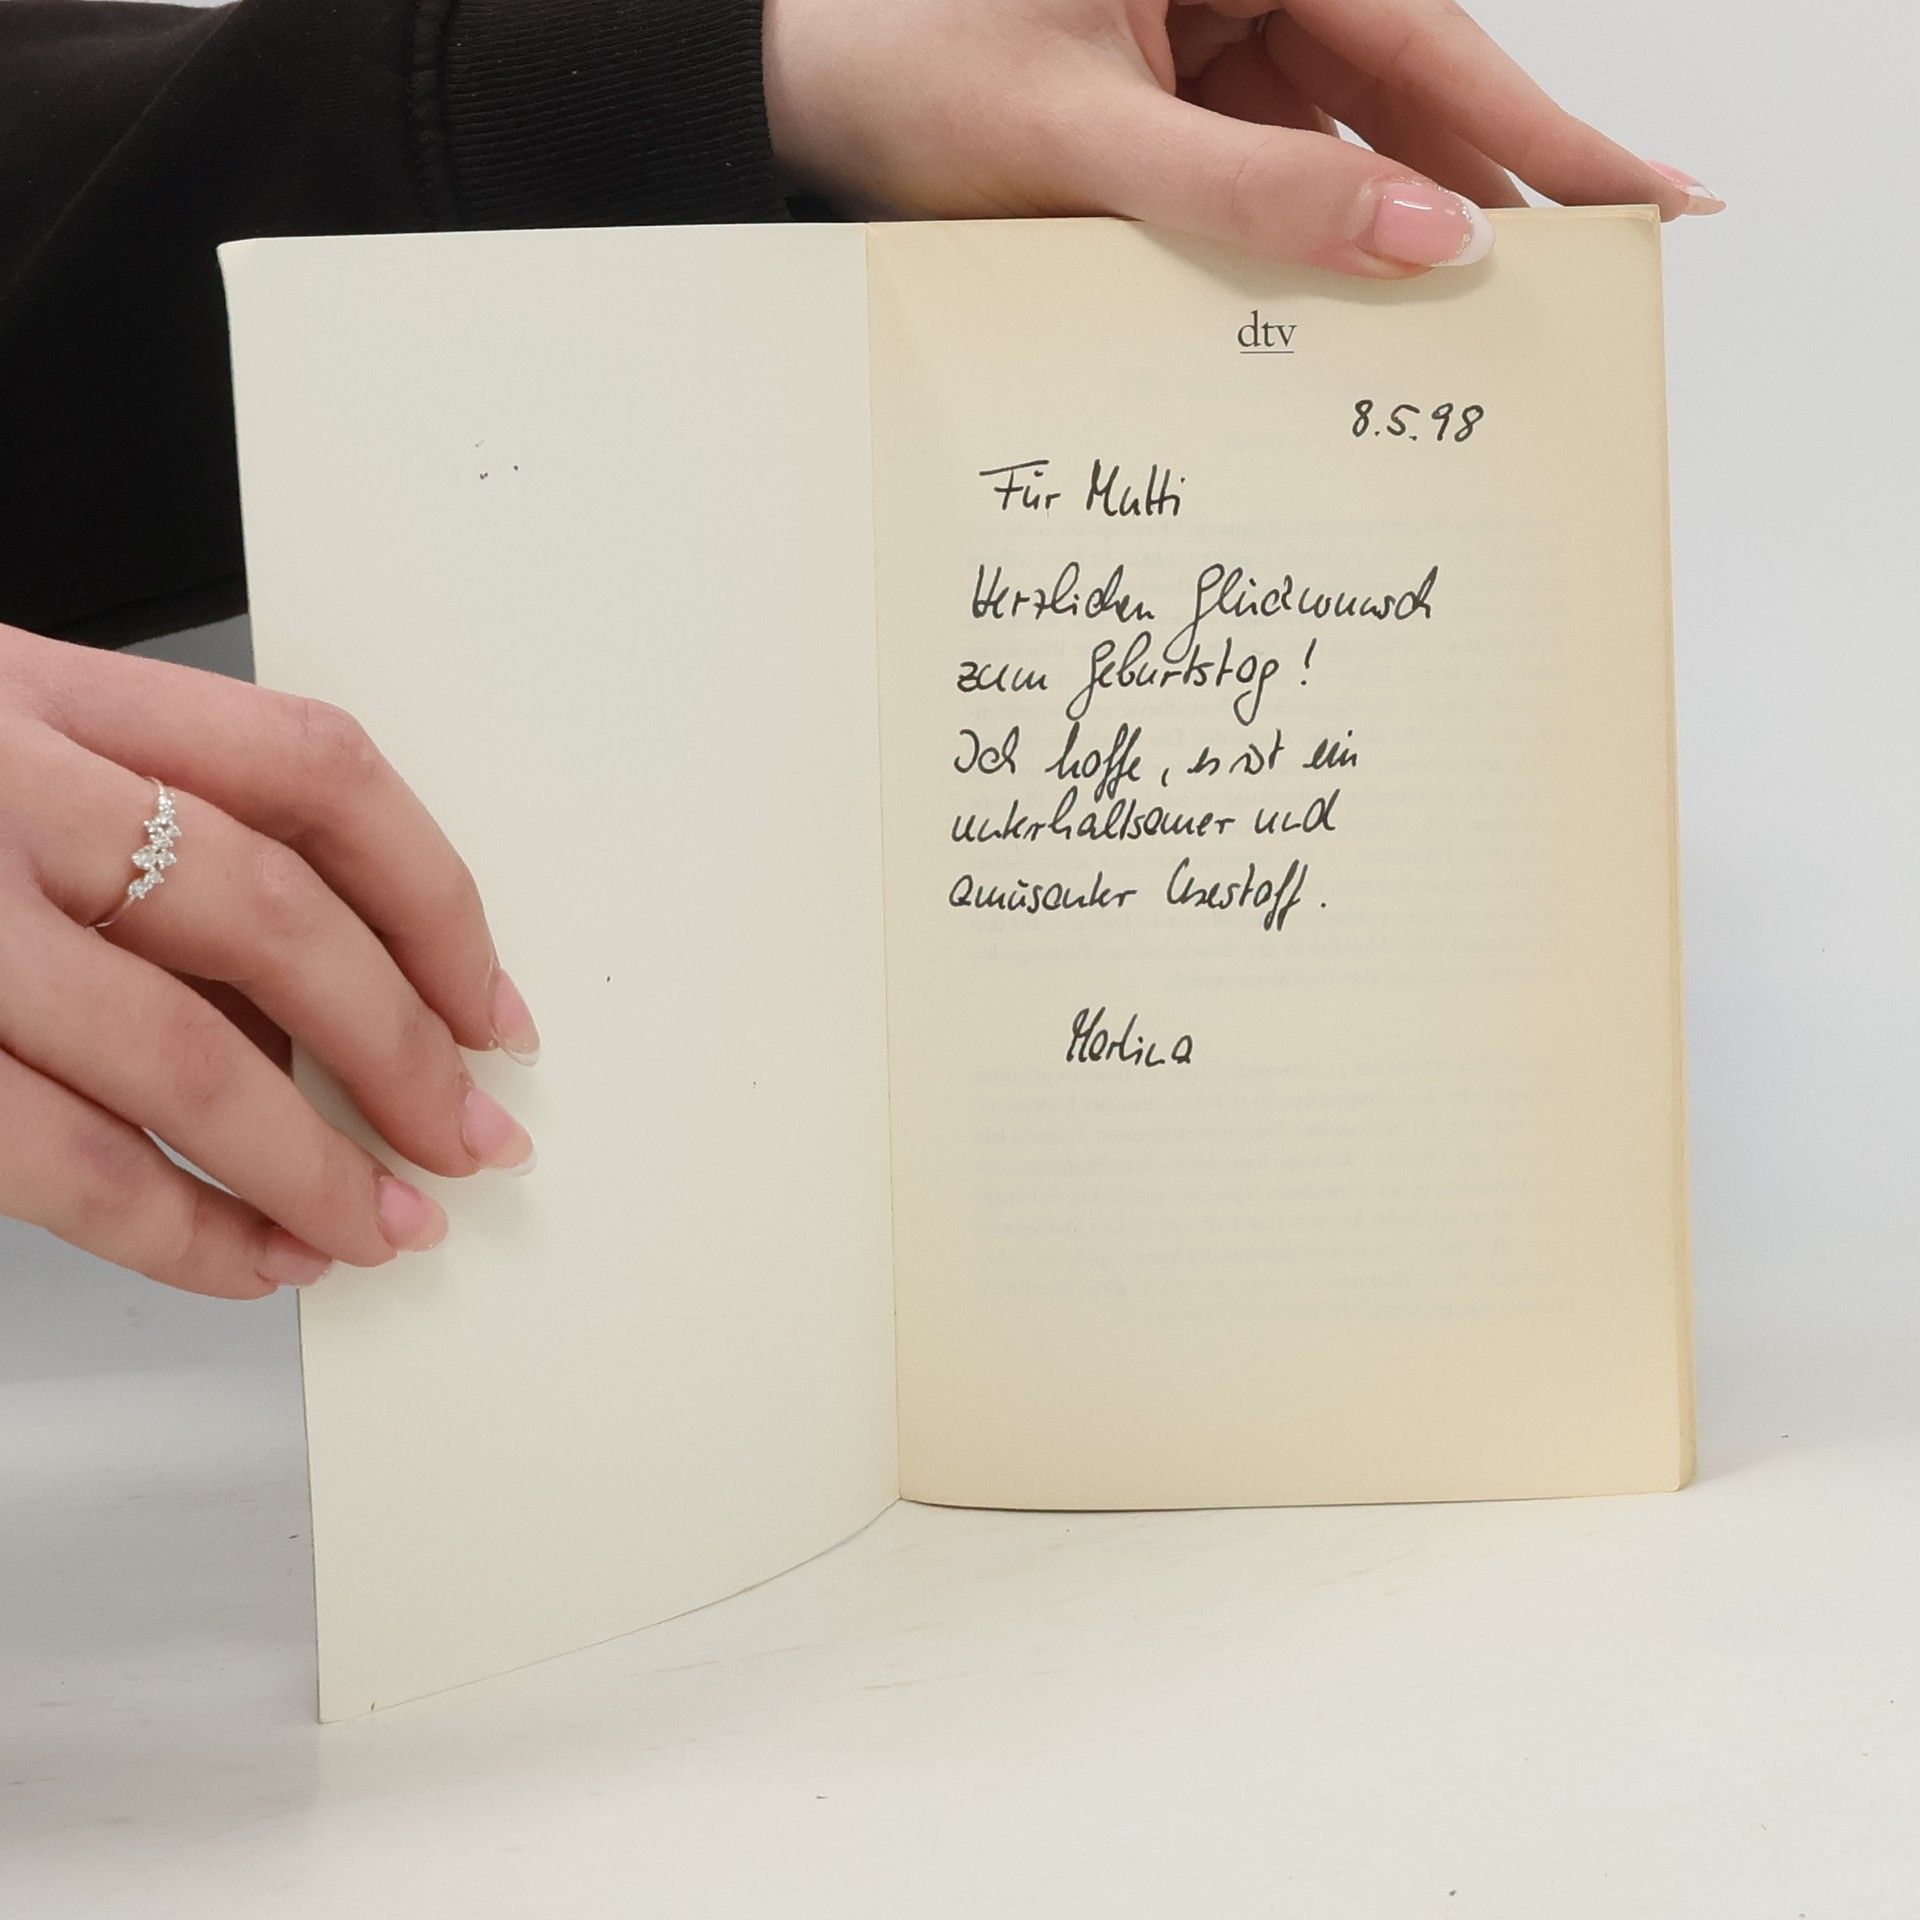 dtv
8.5.98
Für Mutti
Herzlichen Glückwunsch
zum Geburtstag!
Ich hoffe, es ist ein
unterhaltsamer und
amüsanter Lesestoff.
Martina